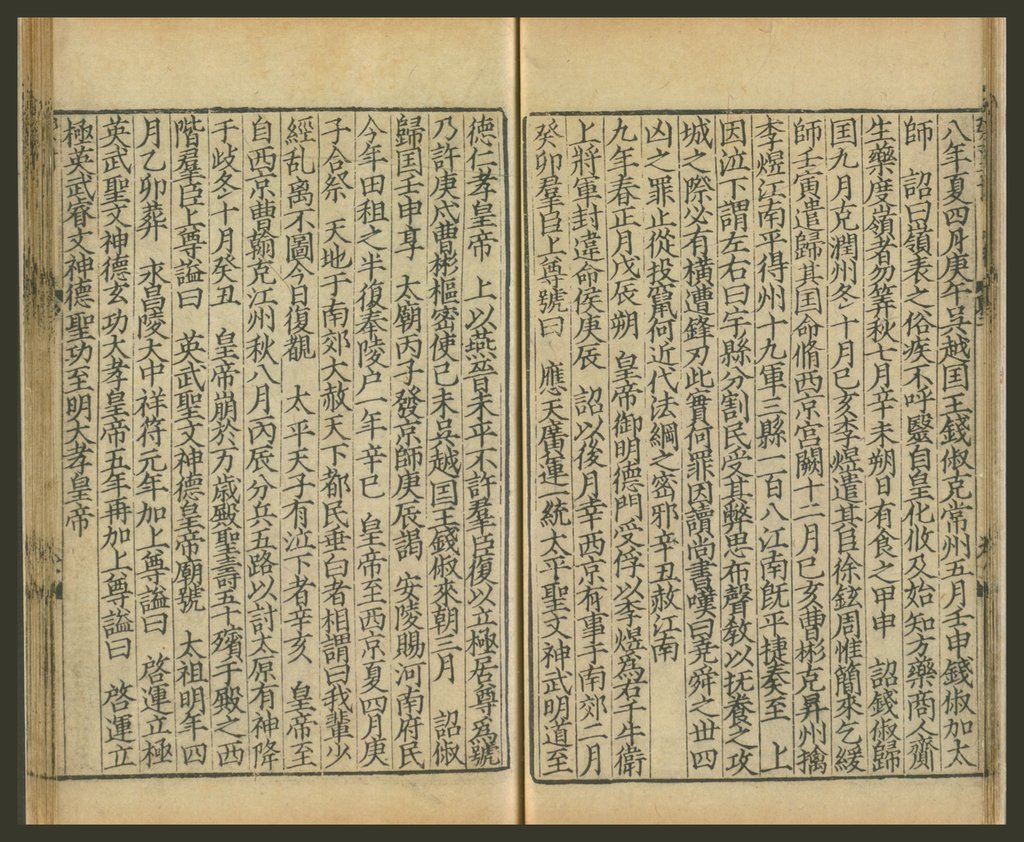 八年夏四月庚午吳越囯王錢俶克常州五月壬申錢俶加太
師　詔曰嶺表之俗疾不呼毉自皇化攸及始知方藥商人齎
生藥度嶺者勿筭秋七月辛未朔日有食之甲申　詔錢俶歸
囯九月克潤州冬十月己亥李煜遣其臣徐鉉周惟簡來乞緩
師壬寅遣歸其囯命脩西京宫闕十二月己亥曹彬克昇州擒
李煜江南平得州十九軍三縣一百八江南旣平捷奏至　上
因泣下謂左右曰宇縣分割民受其弊思布聲敎以抚養之攻
城之際必有橫遭鋒刃此實何罪因讀尚書嘆曰堯舜之世四
凶之罪止從投竄何近代法綱之密邪辛丑赦江南
九年春正月戊辰朔　皇帝御明德門受俘以李煜爲右千牛衛
上將軍封違命侯庚辰　詔以後月幸西京有事于南郊二月
癸卯羣臣上尊號曰　應天廣運一統太平聖文神武明道至
德仁孝皇帝　上以燕晉未平不許羣臣復以立極居尊爲號
乃許庚戍曹彬樞密使己未吳越囯王錢俶來朝三月　詔俶
歸囯壬申享　太廟丙子發京師庚辰謁　安陵賜河南府民
今年田租之半復奉陵户一年辛巳　皇帝至西京夏四月庚
子合祭　天地于南郊大赦天下都民垂白者相謂曰我輩少
經乱离不圖今日復覩　太平天子有泣下者辛亥　皇帝至
自西京曹翰克江州秋八月丙辰分兵五路以討太原有神降
于歧冬十月癸丑　皇帝崩於万歲殿聖壽五十殯于殿之西
階羣臣上尊謚曰　英武聖文神德皇帝廟號　太祖明年四
月乙卯葬　永昌陵大中祥符元年加上尊謚曰　啓運立極
英武聖文神德玄功大孝皇帝五年再加上尊謚曰　啓運立
極英武睿文神德聖功至明大孝皇帝